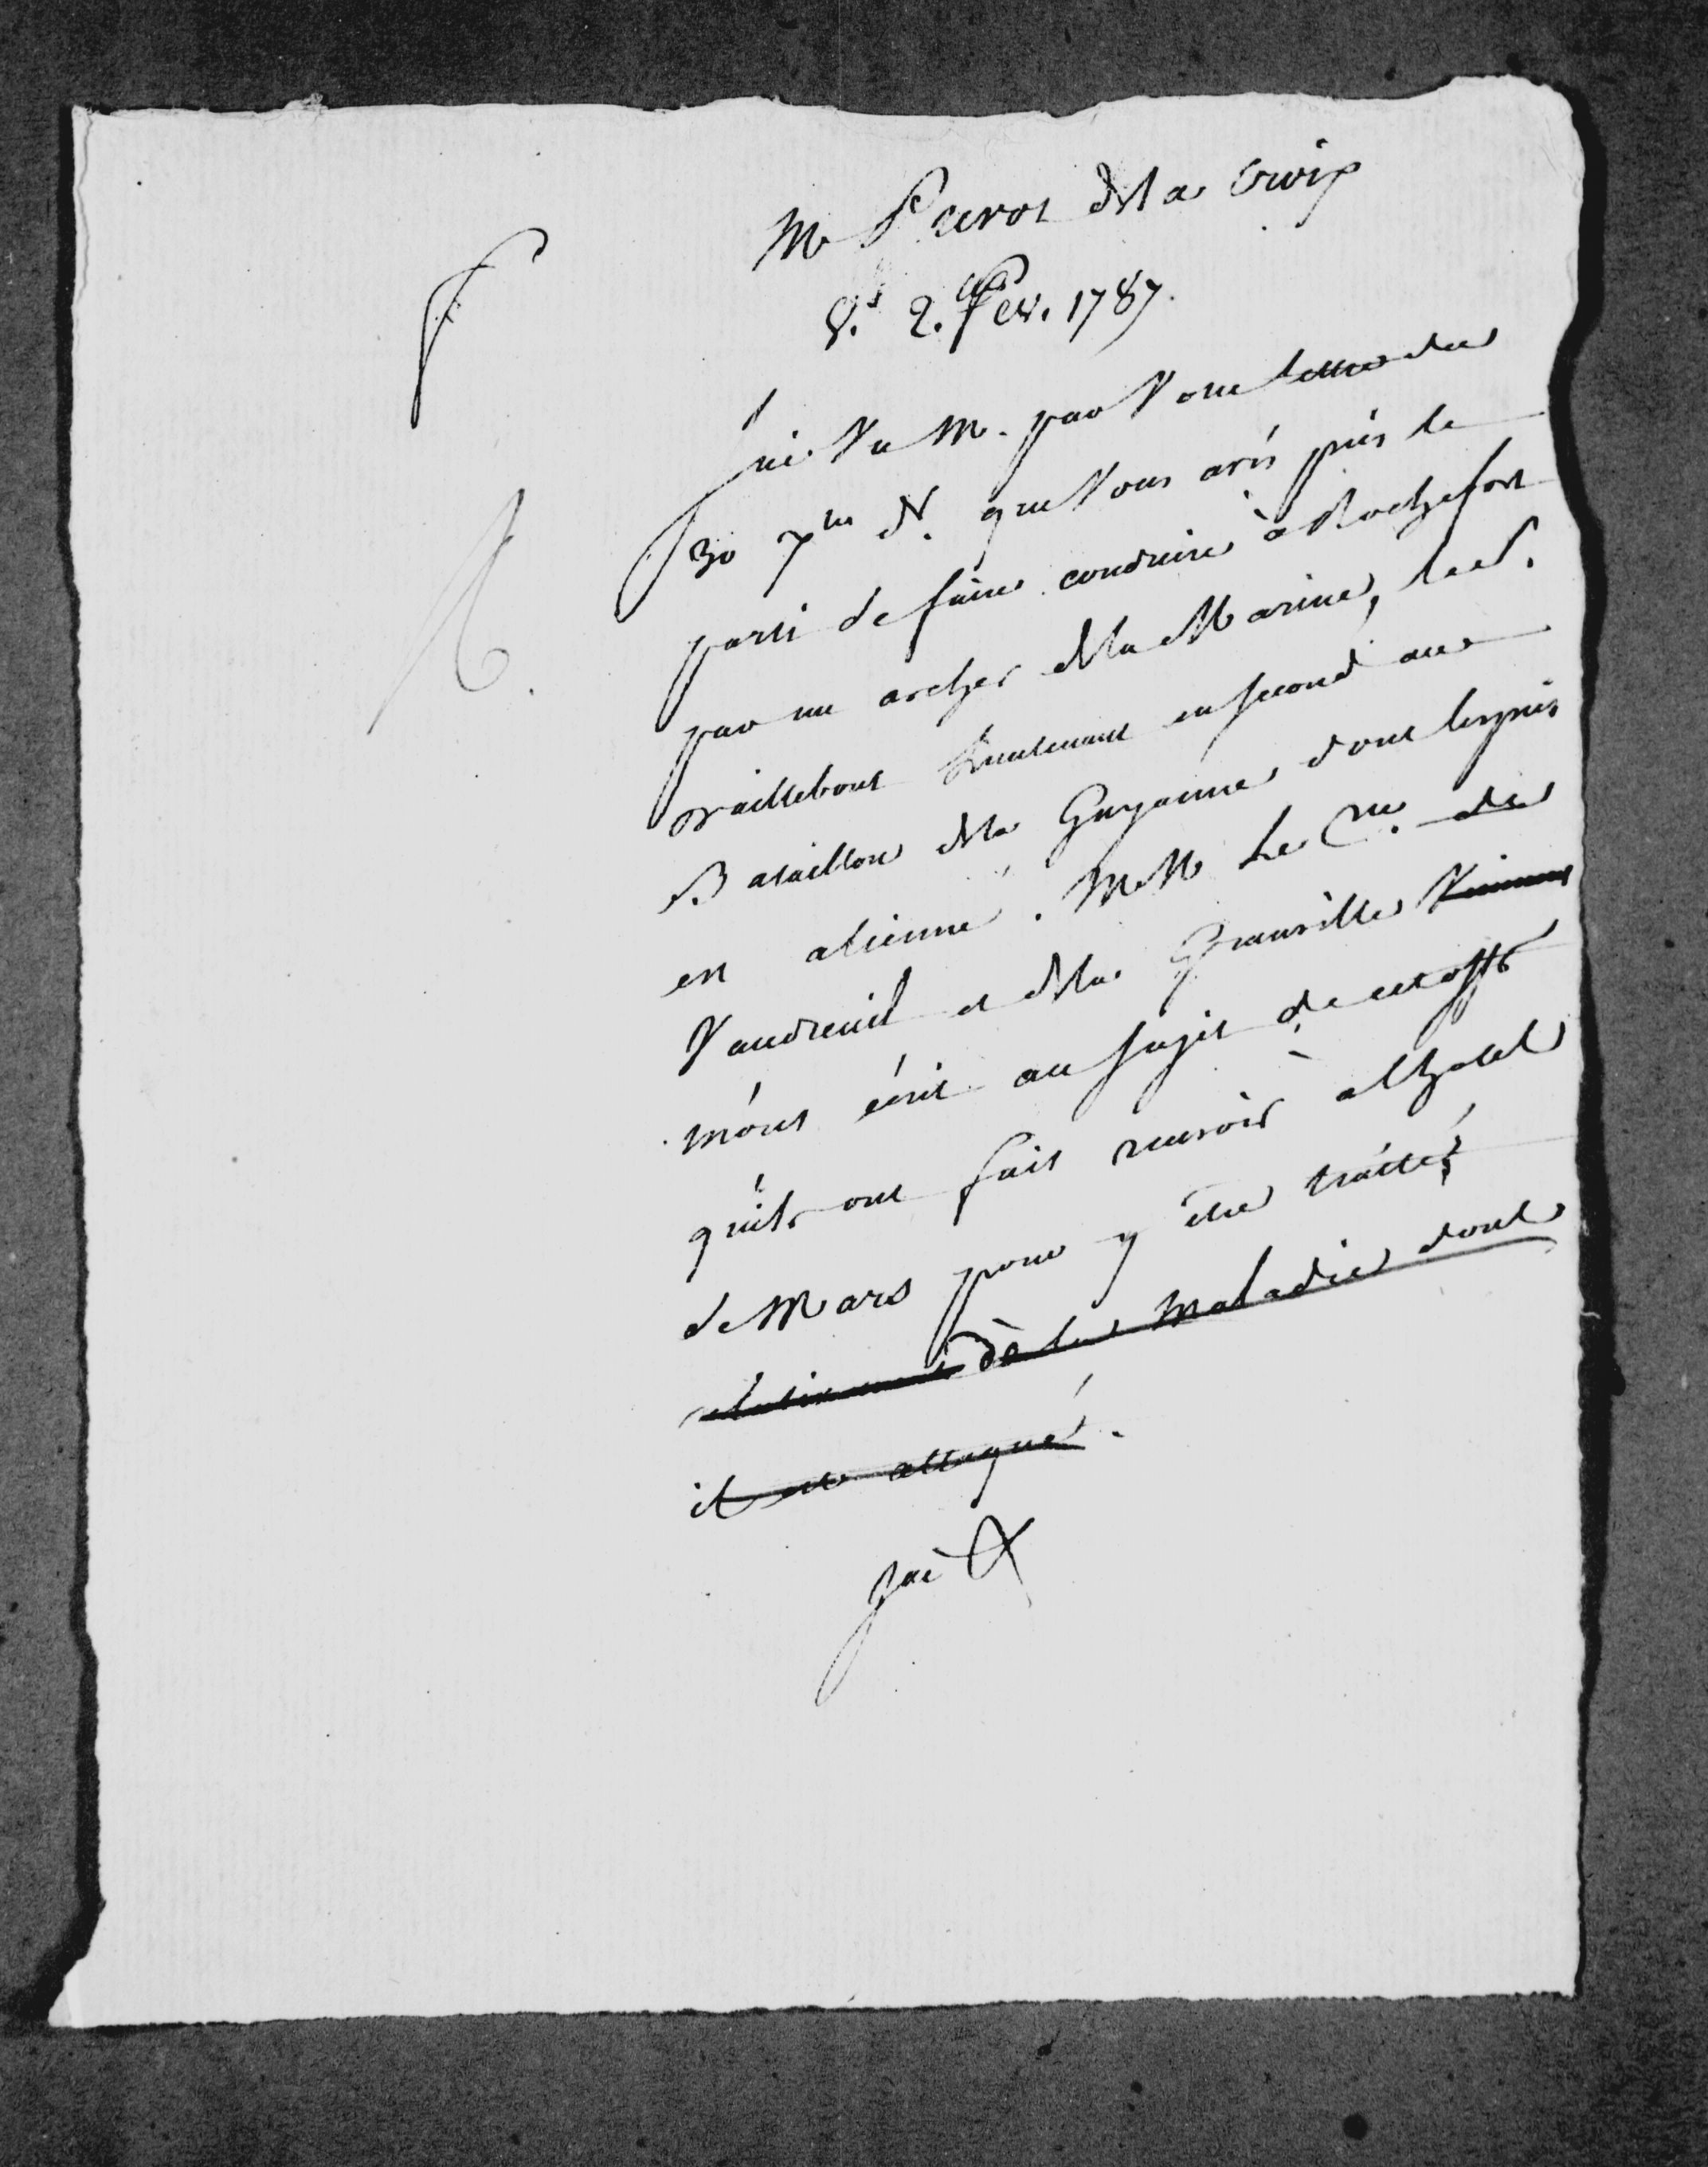 M Prevot dela Croix
Vd. 2. Fev. 1787.
J'ai Vu M. par Votre Lettre du
30 7bre dr. que Vous avés pris le
parti de faire conduire à Rochefort
par un archer dela Marine, le S.
Dailleboust Lieutenant en second au
Bataillon dela Guyanne dont l'esprit
est aliéné. MM Le Cte. de
Vaudreuil et dela Granville
m'ont écrit au sujet de cet offer
qu'ils ont fait recevoir a l'hotel
de Mars pour y etre traitté
relativement à la Maladie dont
il est attaqué.
Jai &